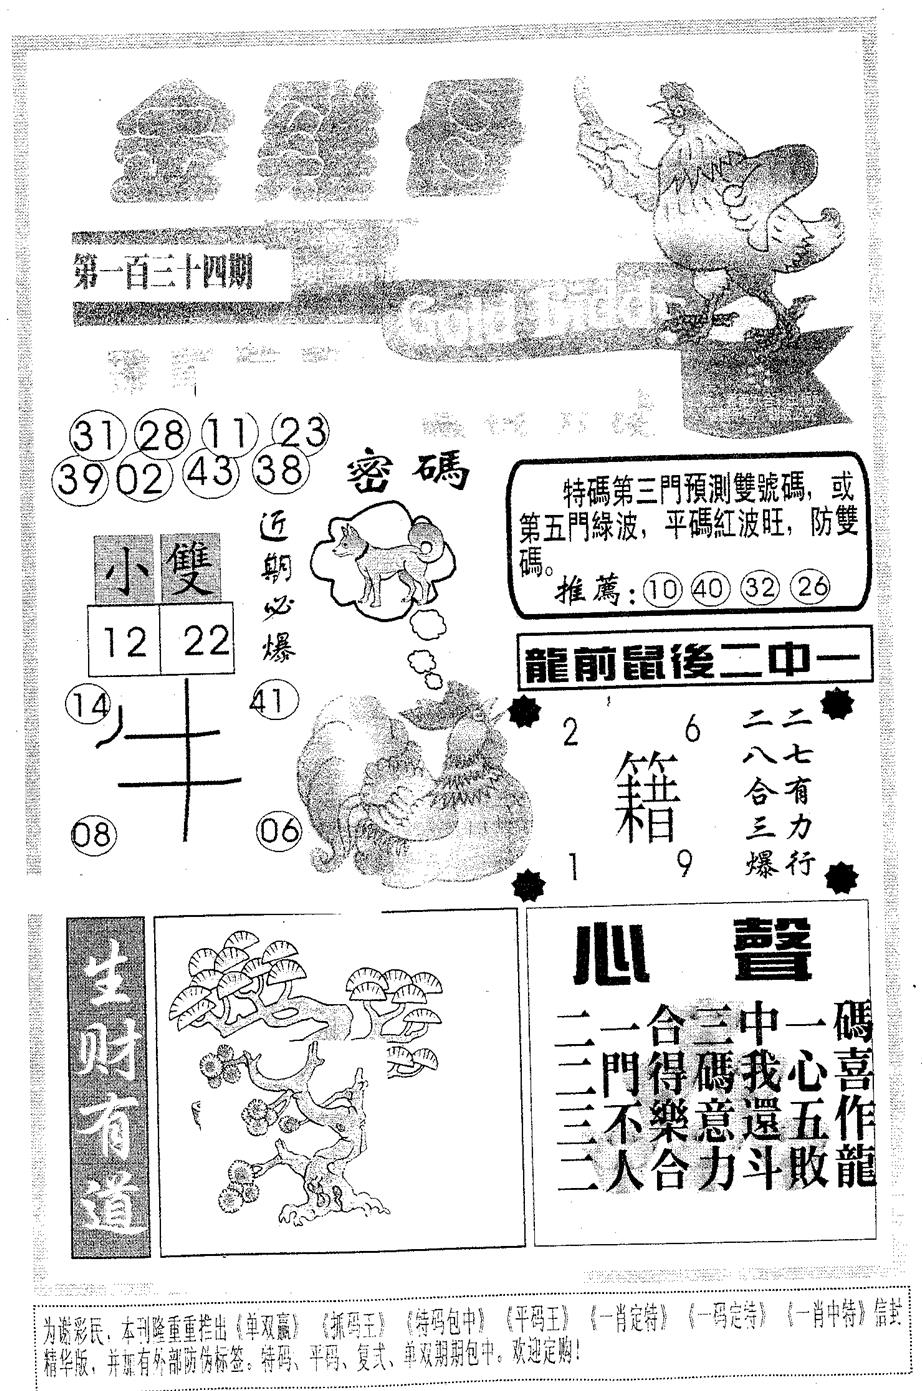 金雞母
第一百三十四期
Gold
31 28 11 23
39 02 43 38
密碼
特碼第三門預測雙號碼，或
第五門綠波，平碼紅波旺，防雙
碼。
推薦：10 40 32 26
小 雙
12 22
近期必爆
龍前鼠後二中一
14 41
牛
08 06
2 6
籍
1 9
二七有力行
二八合三爆
生财有道
心聲
二一合三中一碼
二門得碼我心喜
三不樂意還五作
二人合力斗敗龍
为谢彩民，本刊隆重重推出《单双赢》《抓码王》《特码包中》《平码王》《一肖定特》《一码定特》《一肖中特》信封
精华版，并加有外部防伪标签。特码、平码、复式、单双期期包中。欢迎定购！